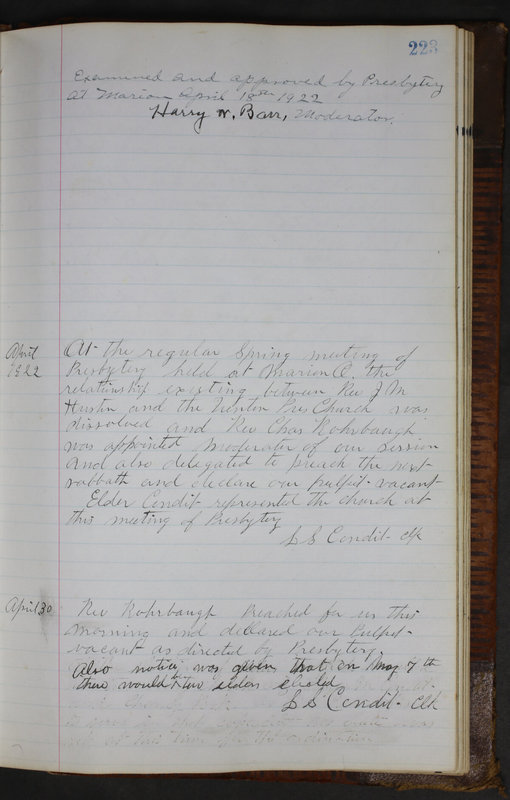 223
Examined and approved by Presbytery
at Marion April 18th 1922
Harry W. Barr, Moderator.
April
1922
At the regular Spring meeting of
Presbytery held at Marion O. the
relationship existing between Rev J M
Huston and the Trenton Pres Church was
dissolved and Rev Chas Rohrbaugh
was appointed moderator of our Session
and also delegated to preach the next
sabbath and declare our pulpit vacant
Elder Condit represented the church at
this meeting of Presbytery
S S Condit clk
April 30
Rev Rohrbaugh Preached for us this
morning and declared our Pulpit
vacant as directed by Presbytery.
Also notice was given that on May 7th
there would be two elders elected
S S Condit clk
at this time for the ordination